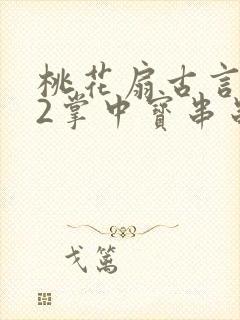 桃花扇古言
2掌中寶串
戈篱